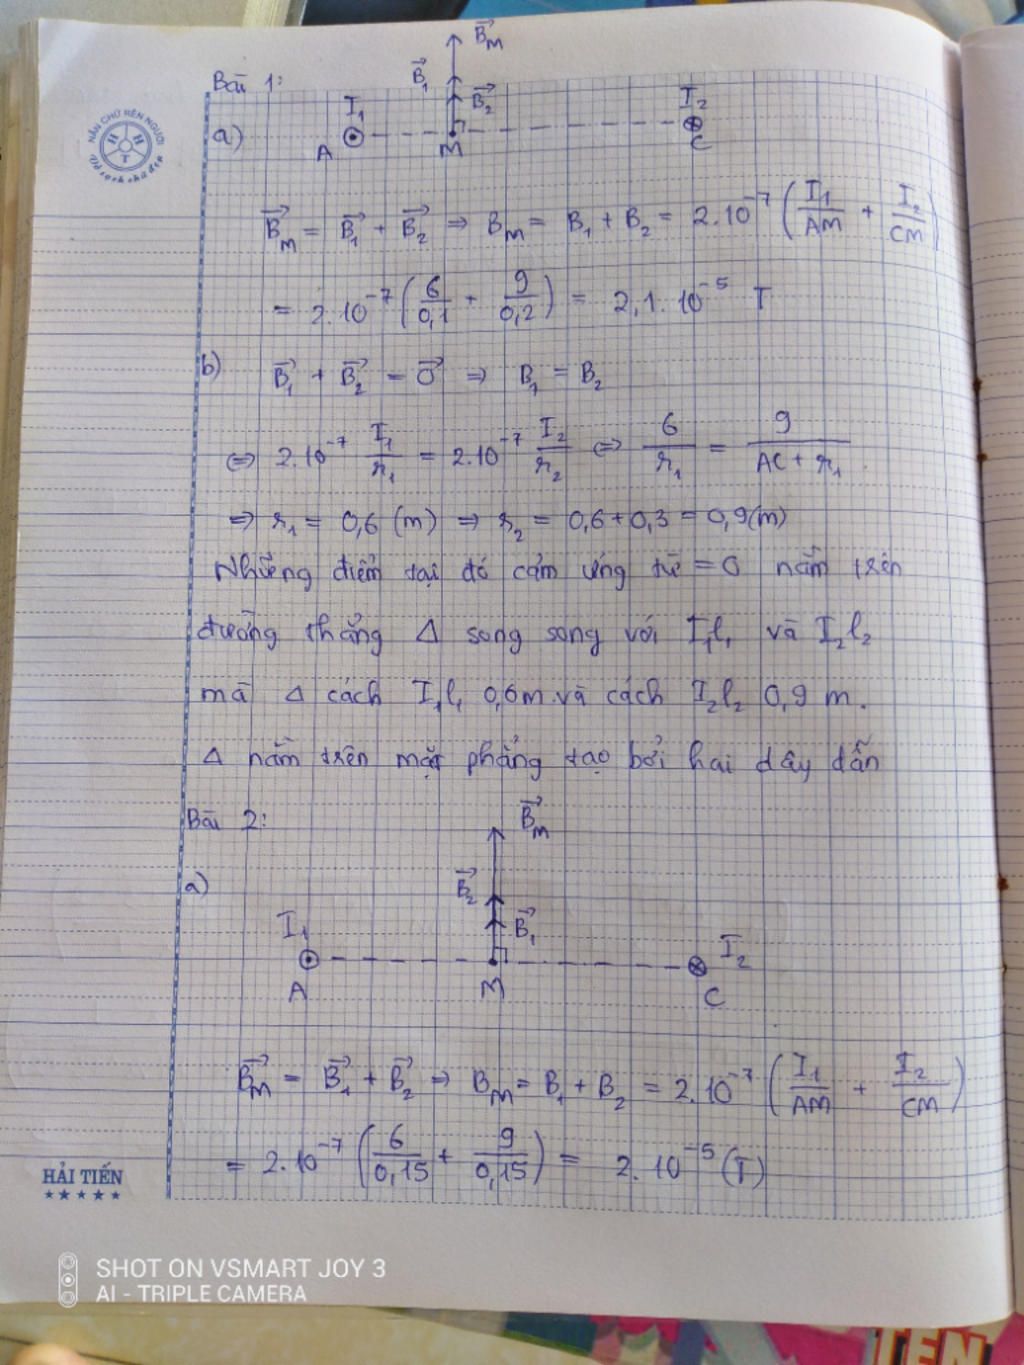 B⃗_M
Bài 1:
B⃗₁
B⃗₂
NẮN CHỮ RÈN NGƯỜI
HHT
Vở sạch chữ đẹp
a)
I₁
I₂
A
M
C
B⃗_M = B⃗₁ + B⃗₂ ⇒ B_M = B₁ + B₂ = 2.10⁻⁷ (I₁/AM + I₂/CM)
= 2.10⁻⁷ (6/0,1 + 9/0,2) = 2,1.10⁻⁵ T
b) B⃗₁ + B⃗₂ = 0⃗ ⇒ B₁ = B₂
⇔ 2.10⁻⁷ I₁/r₁ = 2.10⁻⁷ I₂/r₂ ⇔ 6/r₁ = 9/(AC + r₁)
⇒ r₁ = 0,6 (m) ⇒ r₂ = 0,6 + 0,3 = 0,9 (m)
Những điểm tại đó cảm ứng từ = 0 nằm trên
đường thẳng Δ song song với I₁l₁ và I₂l₂
mà Δ cách I₁l₁ 0,6m và cách I₂l₂ 0,9 m.
Δ nằm trên mặt phẳng tạo bởi hai dây dẫn
Bài 2:
B⃗_M
a)
B⃗₂
B⃗₁
I₁
I₂
A
M
C
B⃗_M = B⃗₁ + B⃗₂ ⇒ B_M = B₁ + B₂ = 2.10⁻⁷ (I₁/AM + I₂/CM)
= 2.10⁻⁷ (6/0,15 + 9/0,15) = 2.10⁻⁵ (T)
HẢI TIẾN
★★★★★
SHOT ON VSMART JOY 3
AI - TRIPLE CAMERA
TEN